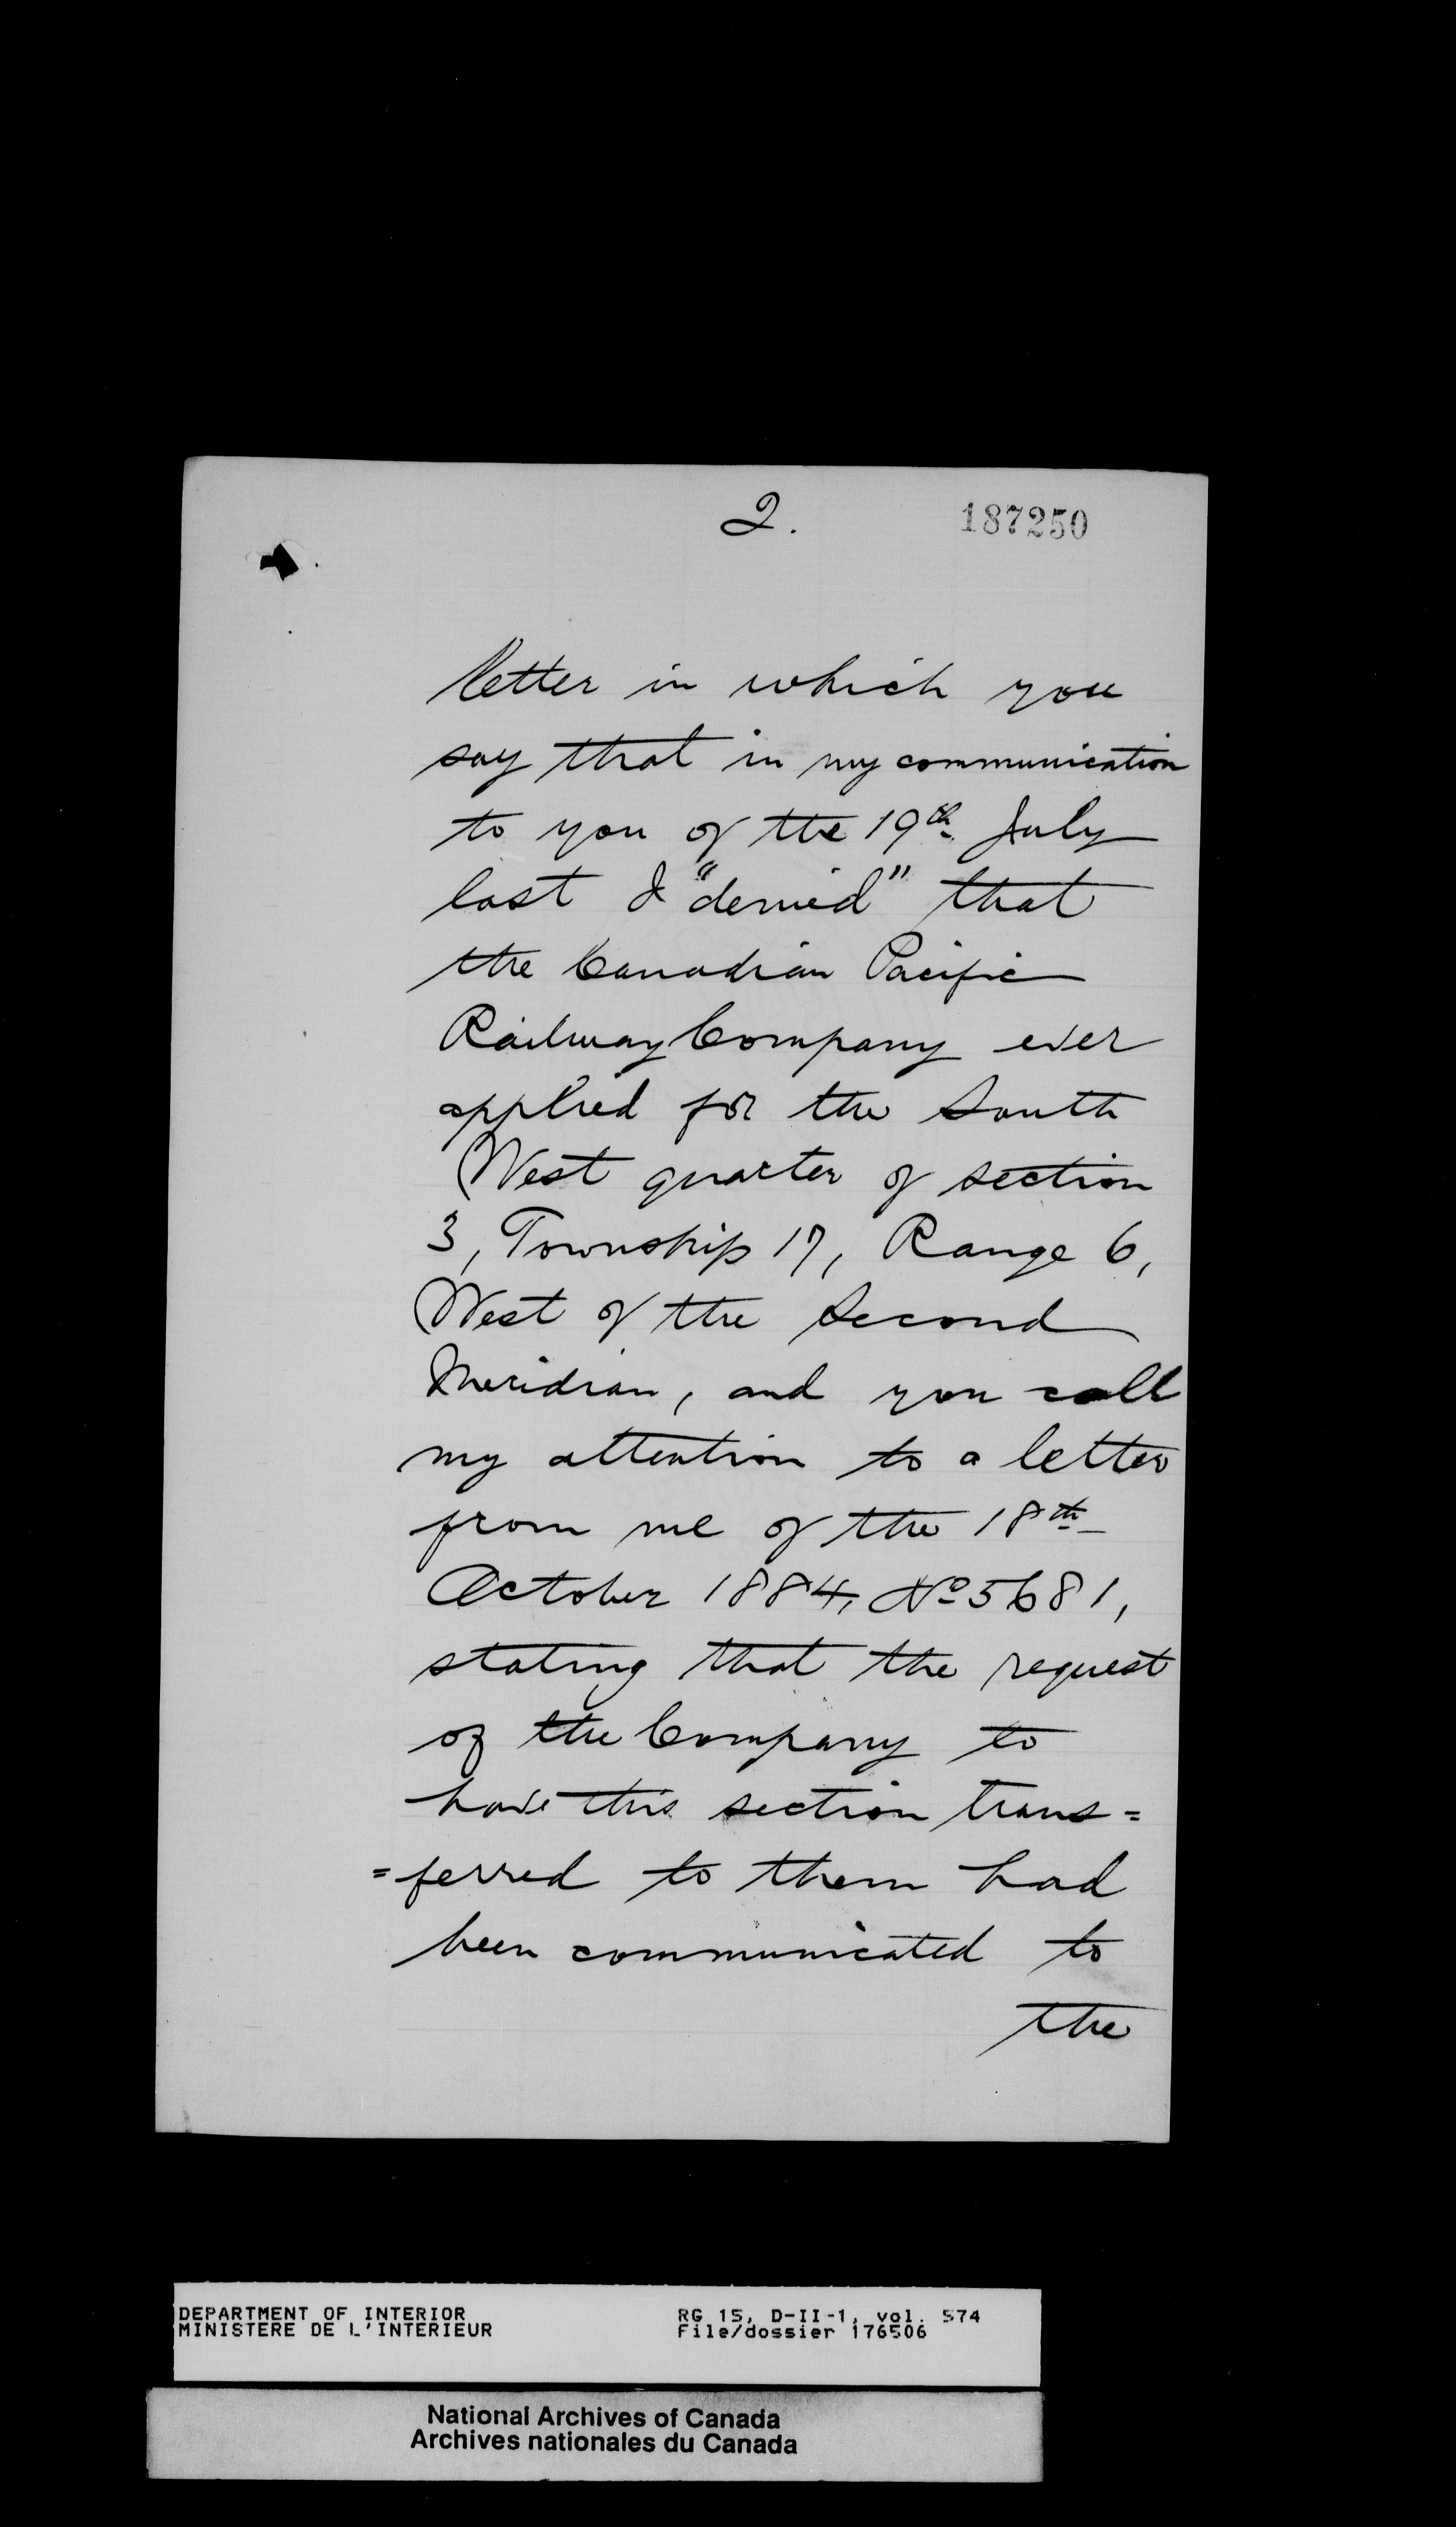 2.
187250
letter in which you
say that in my communication
to you of the 19th July
last I "denied" that
the Canadian Pacific
Railway Company ever
applied for the South
West quarter of section
3, Township 17, Range 6,
West of the Second
Meridian, and you call
my attention to a letter
from me of the 18th
October 1884, No 5681,
stating that the request
of the Company to
have this section trans=
=ferred to them had
been communicated to
the
DEPARTMENT OF INTERIOR
MINISTERE DE L'INTERIEUR
RG 15, D-II-1, vol. 574
File/dossier 176506
National Archives of Canada
Archives nationales du Canada